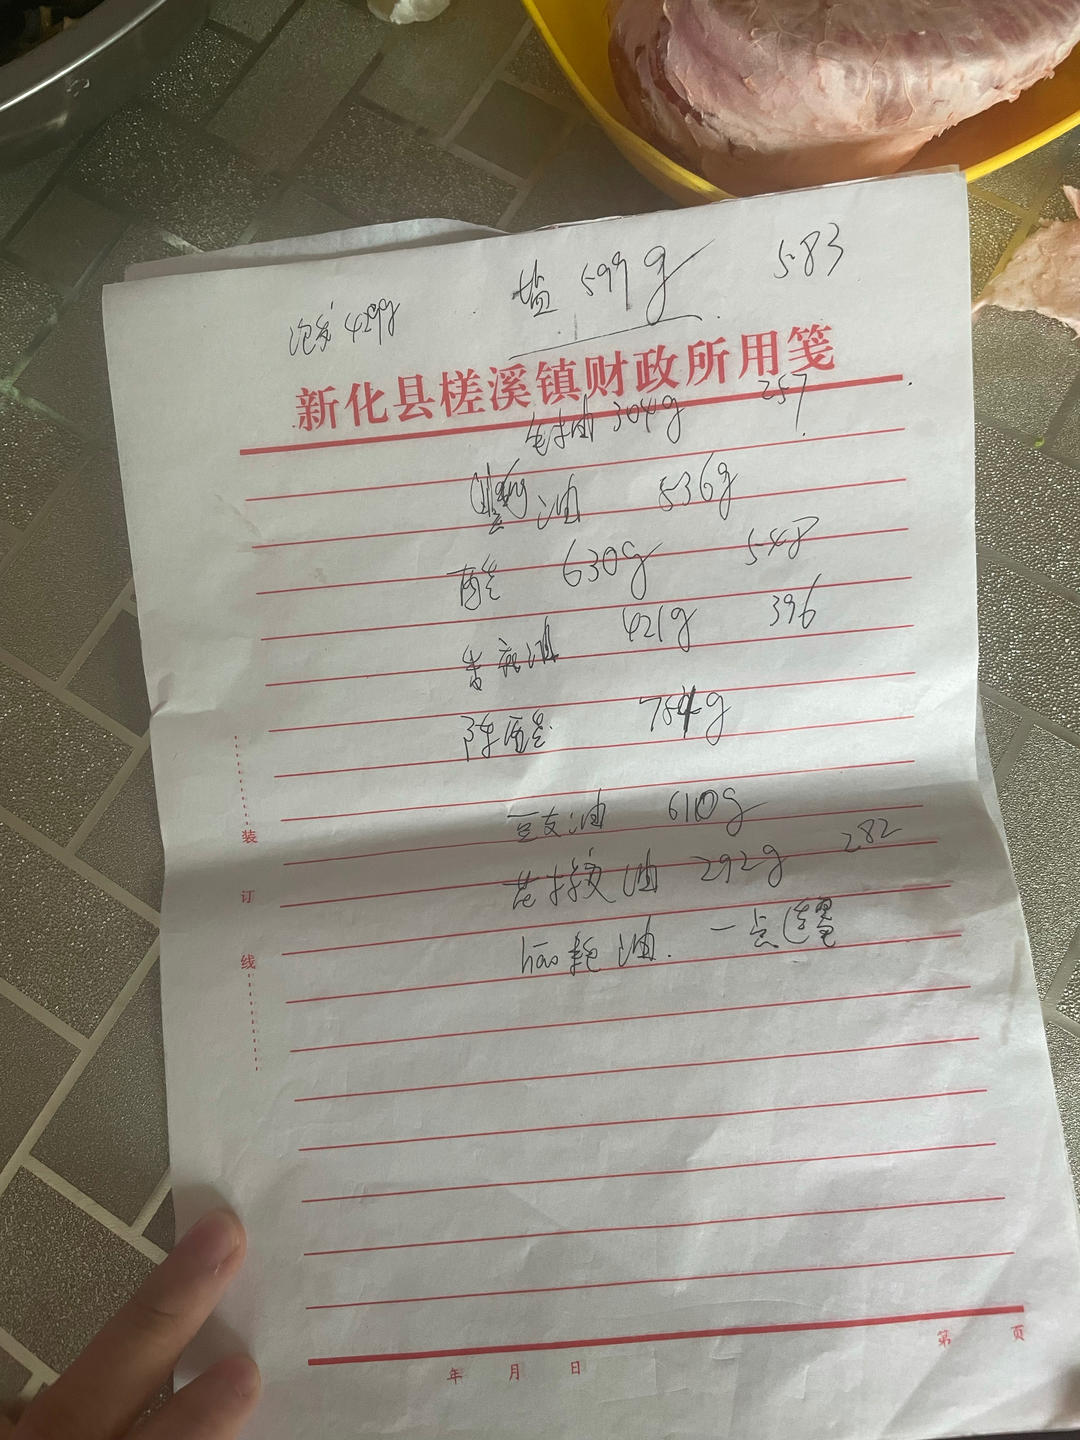 盐 599g 583
泡发 429g
新化县槎溪镇财政所用笺
生抽油 304g 257
油 536g
醋 630g 548
香麻油 421g 396
陈醋 754g
豆支油 610g
花椒油 292g 282
hao耗油. 一点
装
订
线
第 页
年 月 日